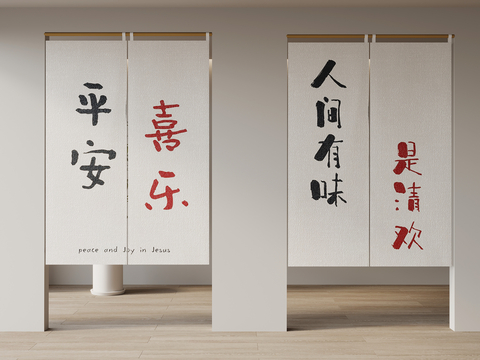 平安
喜乐
peace and Joy in Jesus
人间有味
是清欢